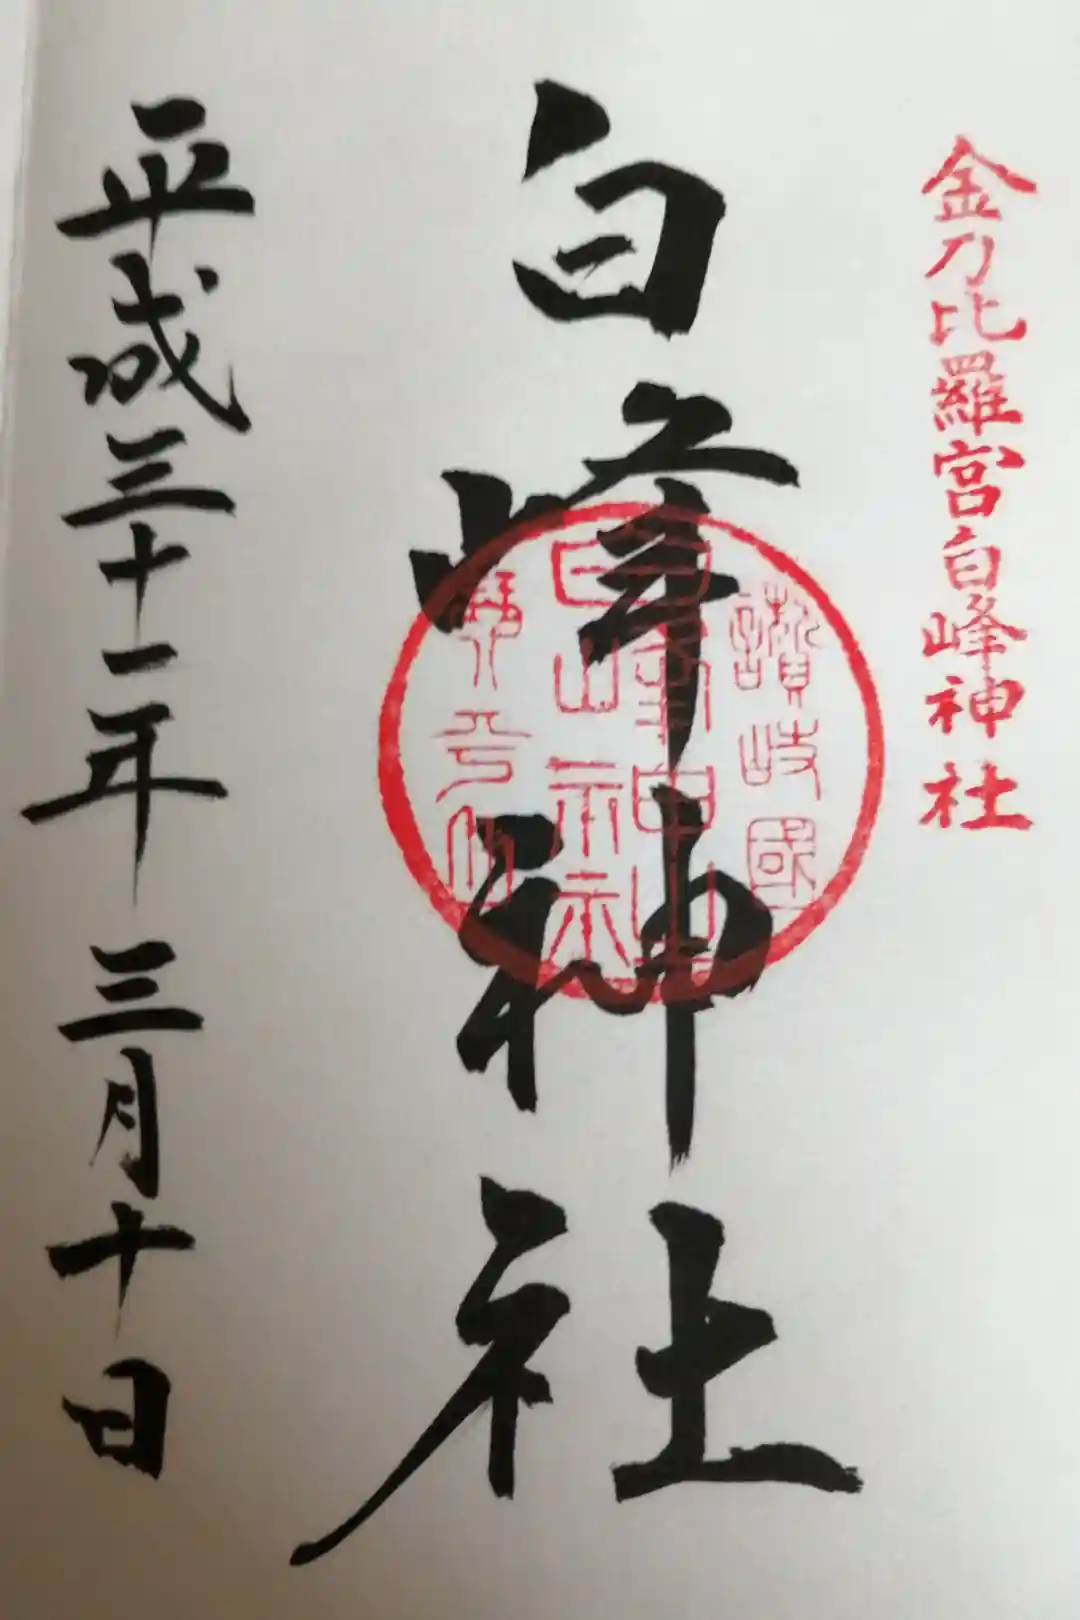 金刀比羅宮白峰神社
白峰神社
讃岐國
白峰神社
平成三十一年 三月十日